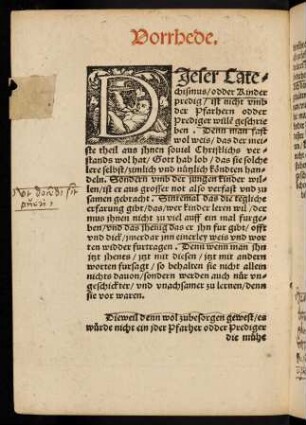 Vorrhede.
DJeser Cate-
chismus/odder Kinder
predig/ist nicht vmb
der Pfarhern odder
Prediger wille geschrie
ben. Denn man fast
wol weis/das der mei-
ste theil aus jhnen souiel Christlichs ver-
stands wol hat/Gott hab lob/das sie solche
lere selbst/zimlich vnd nützlich können han-
deln. Sondern vmb der jungen kinder wil-
len/ist er aus grosser not also verfast vnd zu
samen gebracht. Sintemal das die tegliche
erfarung gibt/das/wer kinder leren wil/der
mus jhnen nicht zu viel auff ein mal furge-
ben/vnd das jhenig das er jhn fur gibt/offt
vnd dick/jmerdar jnn einerley weis vnd wor
ten widder furtragen. Denn wenn man jhn
jtzt jhenes/jtzt mit diesen/jtzt mit andern
worten fursagt/so behalten sie nicht allein
nichts dauon/sondern werden auch nur vn-
geschickter/vnd vnachsamer zu lernen/denn
sie vor waren.
Dieweil denn wol zubesorgen gewest/es
würde nicht ein jder Pfarher odder Prediger
die mühe